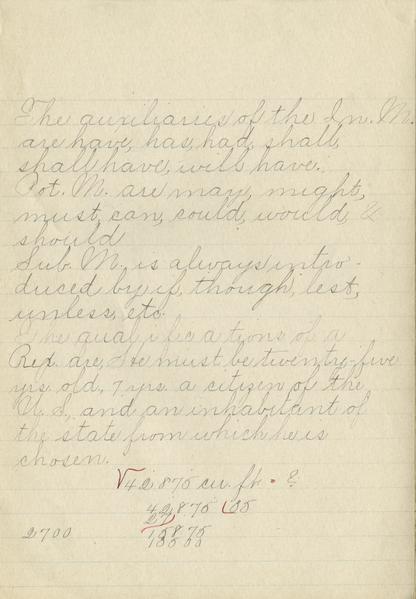 The auxiliaries of the In. M.
are have, has, had, shall,
shall have, will have.
Pot. M. are may, might,
must, can, could, would, &
should
Sub. M. is always intro-
duced by if, though, lest,
unless, etc.
The qualifications of a
Rep. are, He must be twenty-five
yrs. old, 7 yrs. a citizen of the
U. S., and an inhabitant of
the state from which he is
chosen.
√42875 cu. ft. = ?
42875 35
27
2700 15875